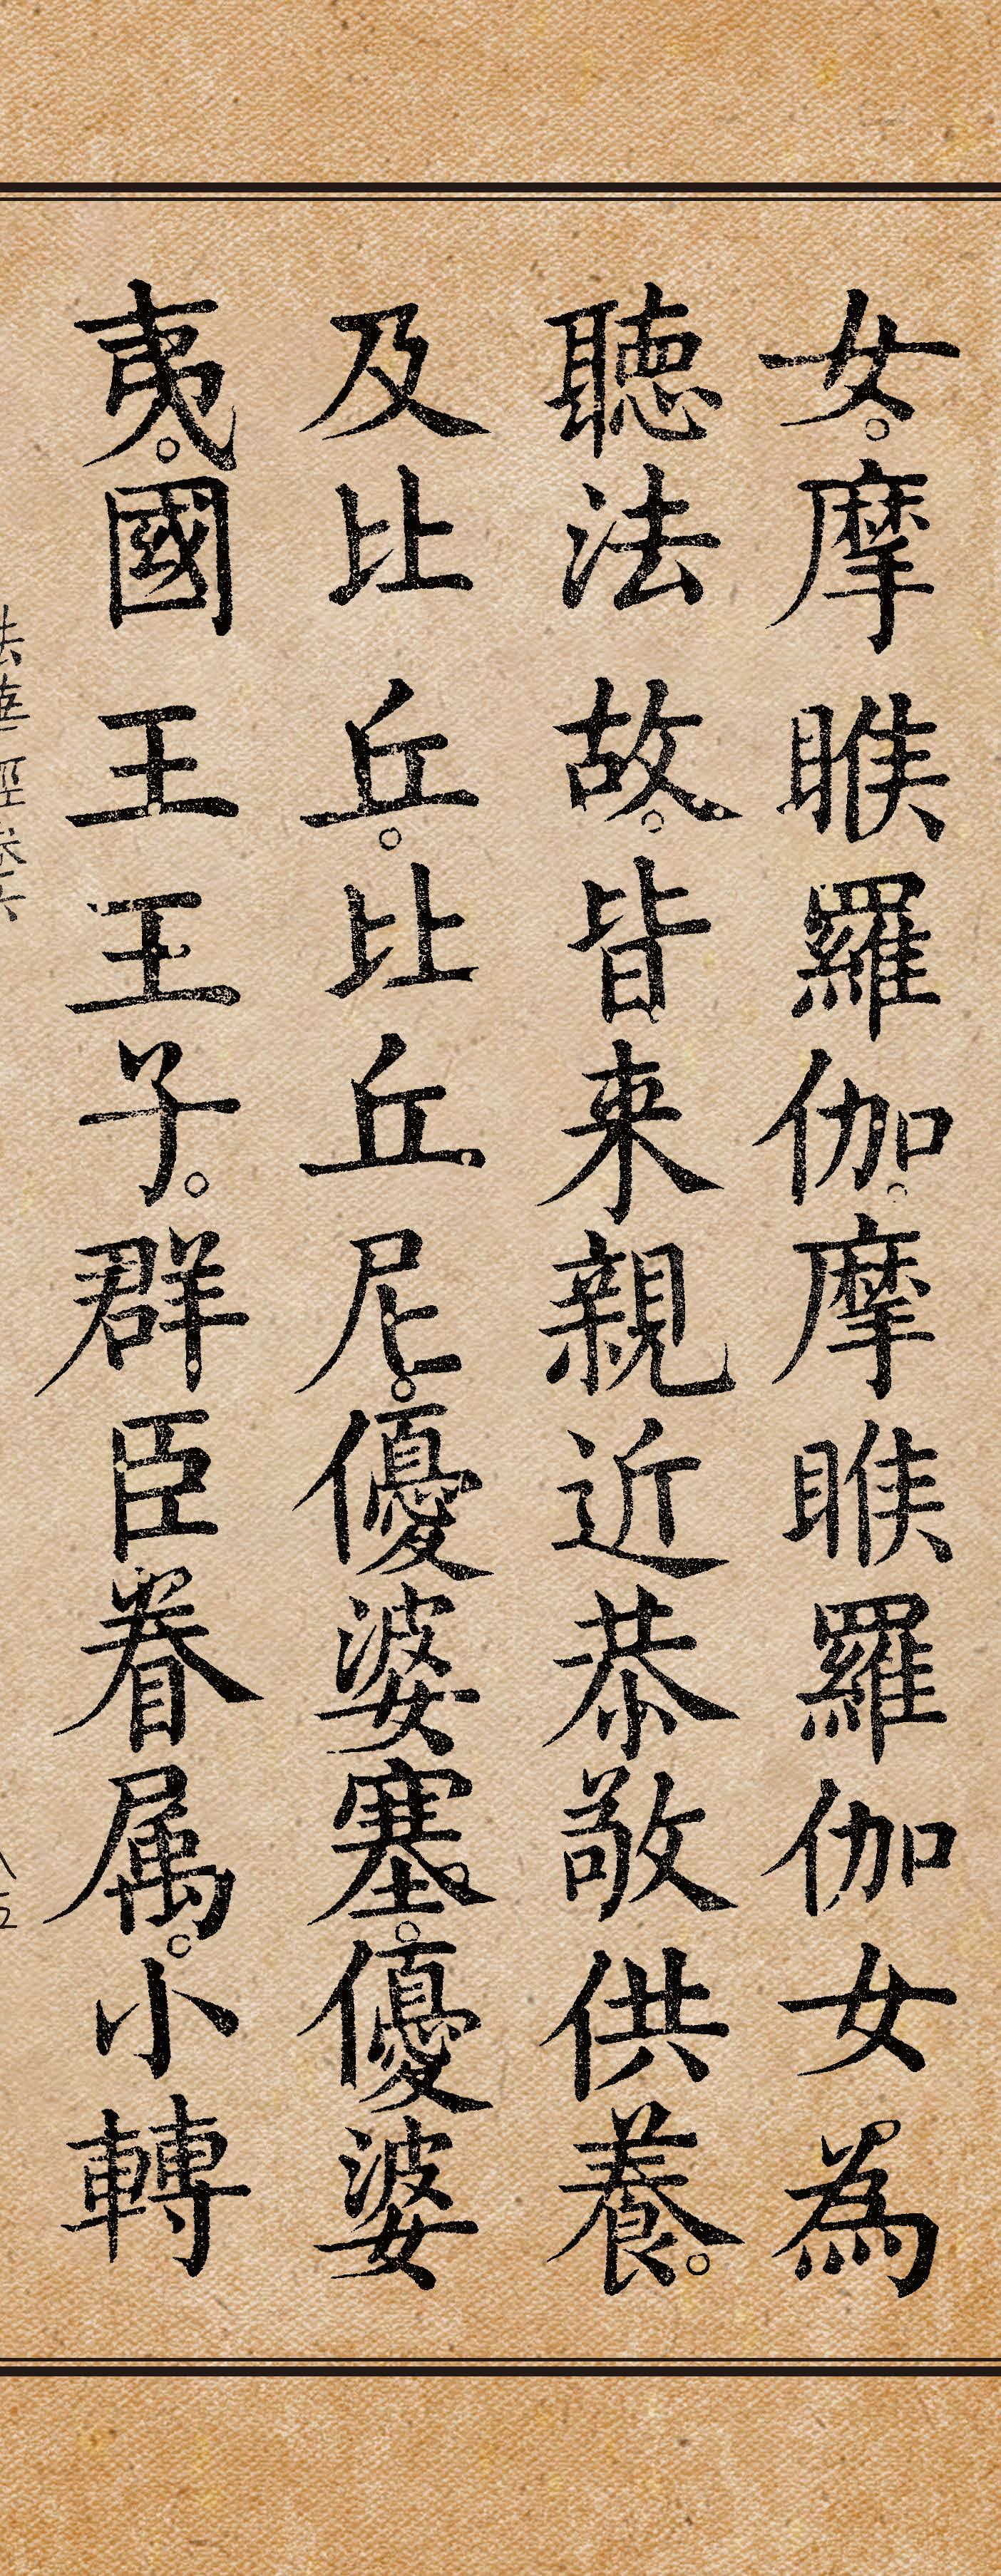 女。摩睺羅伽。摩睺羅伽女為
聽法故。皆来親近恭敬供養。
及比丘。比丘尼。優婆塞。優婆
夷。國王王子。群臣眷属。小轉
法華經卷六